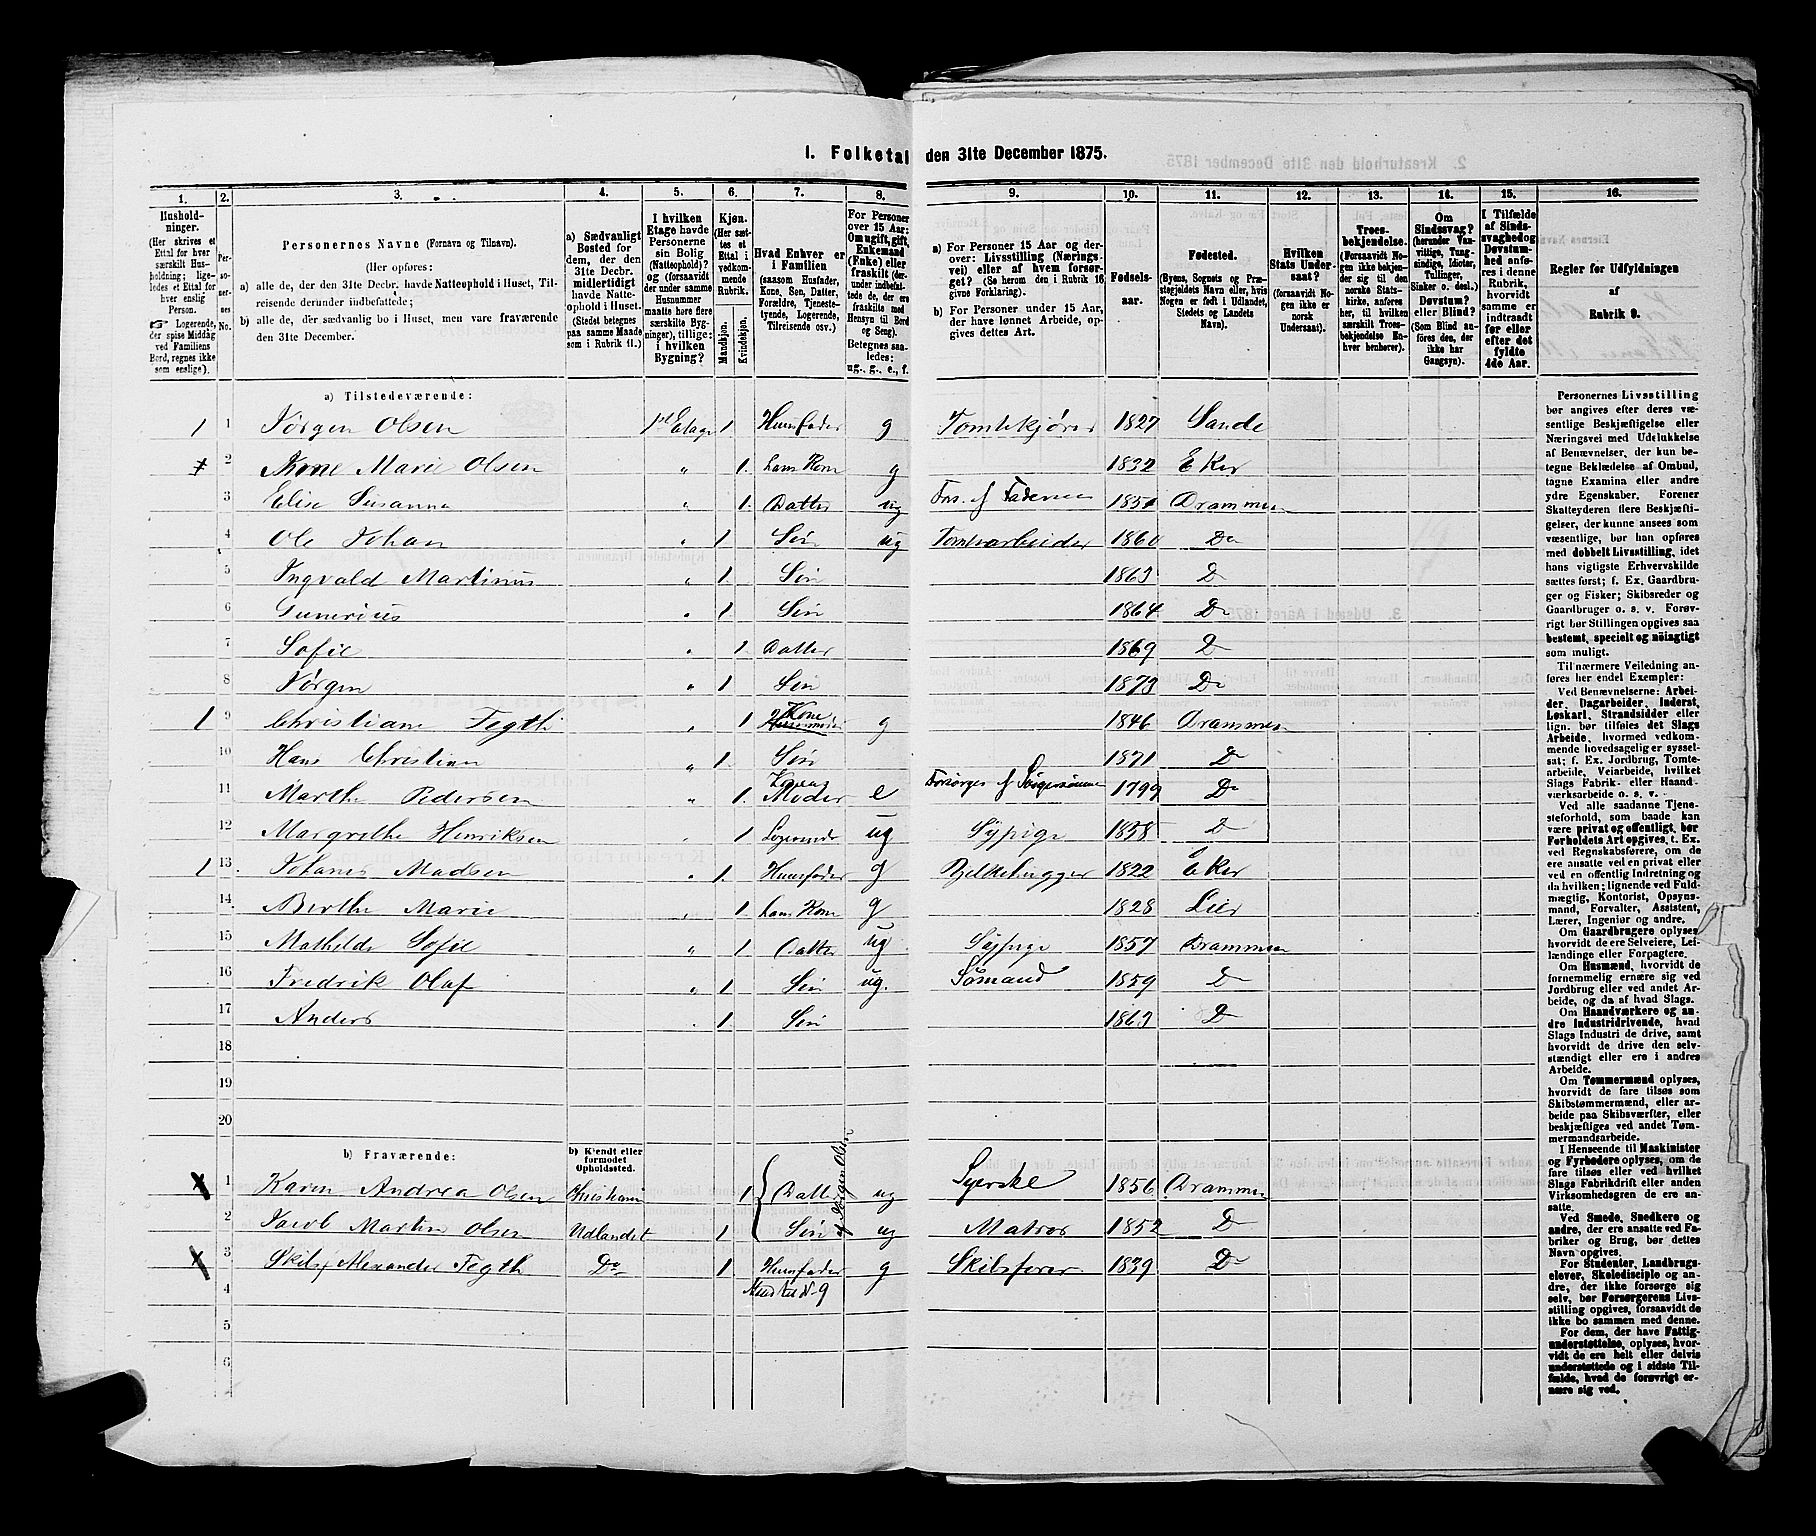 I. Folketal den 31te December 1875.
1. 2. 3. 4. 5. 6. 7. 8. 9. 10. 11. 12. 13. 14. 15. 16.
Husholdninger. (Her skrives et Ettal for hver særskilt Husholdning; ligeledes et Ettal for hver enslig Person. ☞ Logerende, der spise Middag ved Familiens Bord, regnes ikke som enslige).
Personernes No.
Personernes Navne (Fornavn og Tilnavn).
(Her opføres:
a) alle de, der den 31te Decbr. havde Natteophold i Huset, Tilreisende derunder indbefattede;
b) alle de, der sædvanlig bo i Huset, men vare fraværende den 31te December.
a) Sædvanligt Bosted for dem, der den 31te Decbr. midlertidigt havde Natteophold i Huset. (Stedet betegnes paa samme Maade som i Rubrik 11.)
I hvilken Etage havde Personerne sin Bolig (Natteophold)? og (forsaavidt der under samme Husnummer maatte høre flere særskilte Bygninger), tillige: i hvilken Bygning?
Kjøn. (Her sættes et Ettal i vedkommende Rubrik. Mandkjøn. Kvindekjøn.
Hvad Enhver er i Familien (saasom Husfader, Kone, Søn, Datter, Forældre, Tjenestetyende, Logerende, Tilreisende osv.)
For Personer over 15 Aar: Om ugift, gift, Enkemand (Enke) eller fraskilt (derunder indbefattede de, der ere fraskilte med Hensyn til Bord og Seng). Betegnes saaledes: ug., g., e., f.
a) For Personer 15 Aar og derover: Livsstilling (Næringsvei) eller af hvem forsørget? (Se herom den i Rubrik 16 givne Forklaring).
b) For Personer under 15 Aar, der have lønnet Arbeide, opgives dettes Art.
Fødselsaar.
Fødested. (Byens, Sognets og Præstegjeldets Navn eller, hvis Nogen er født i Udlandet, Stedets og Landets Navn).
Hvilken Stats Undersaat? (forsaavidt Nogen ikke er norsk Undersaat).
Troesbekjendelse. (Forsaavidt Nogen ikke bekjender sig til den norske Statskirke, anføres her, til hvilken særskilt Troesbekjendelse Enhver henhører).
Om Sindssvag? (herunder Vanvittige, Tungsindige, Idioter, Tullinger, Sinker o. desl.) Døvstum? eller Blind? (Som Blind anføres den, der ikke har Gangsyn).
I Tilfælde af Sindssvaghed og Døvstumhed anføres i denne Rubrik, hvorvidt samme er indtraadt før eller efter det fyldte 4de Aar.
Regler for Udfyldningen af Rubrik 9.
a) Tilstedeværende:
1 1 Jørgen Olsen 1st Etage 1. Huusfader g Tomtekjører 1827 Sande
2 Anne Marie Olsen " 1. hans Kone g 1832 Eker
3 Elise Susanna " 1. Datter ug Fors. af Faderen 1851 Drammen
4 Ole Johan " 1. Søn ug Tomtearbeider 1860 Do
5 Ingvald Martinus " 1. Søn 1863 Do
6 Gunerius " 1. Søn 1864 Do
7 Sofie " 1. Datter 1869 Do
8 Jørgen " 1. Søn 1873 Do
1 9 Christiane Tegth " 1. Kone g 1846 Drammen
10 Hans Christian " 1. Søn 1871 Do
11 Marthe Pedersen " 1. Konens Moder e Forsørges af Svigersønnen 1799 Do
12 Margrethe Henriksen " 1. Logerende ug Sypige 1858 Do
1 13 Johanes Madsen " 1. Huusfader g Bjelkehugger 1822 Eker
14 Berthe Marie " 1. hans Kone g 1828 Lier
15 Mathilde Sofie " 1. Datter ug. Sypige 1857 Drammen
16 Fredrik Olaf " 1. Søn ug. Sømand 1859 Do
17 Anders 1. Søn 1863 Do
18
19
20
b) Fraværende: b) Kjendt eller formodet Opholdssted.
1 Karen Andrea Olsen Christiania 1 Datter af Jørgen Olsen ug Syerske 1856 Drammen
2 Jacob Martin Olsen Udlandet 1 Søn ug Matros 1852 Do
3 Alexander Tegth Do 1 Huusfader g Skibsfører 1839 Do
4 9
5
6
Personernes Livsstilling bør angives efter deres væsentlige Beskjæftigelse eller Næringsvei med Udelukkelse af Benævnelser, der kun betegne Beklædelse af Ombud, tagne Examina eller andre ydre Egenskaber. Forener Skatteyderen flere Beskjæftigelser, der kunne ansees som væsentlige, bør han opføres med dobbelt Livsstilling, idet hans vigtigste Erhvervskilde sættes først; f. Ex. Gaardbruger og Fisker; Skibsreder og Gaardbruger o. s. v. Forøvrigt bør Stillingen opgives saa bestemt, specielt og nöiagtigt som muligt.
Til nærmere Veiledning anføres her endel Exempler:
Ved Benævnelserne: Arbeider, Dagarbeider, Inderst, Løskarl, Strandsidder eller lign. bør tilføies det Slags Arbeide, hvormed vedkommende hovedsagelig er sysselsat; f. Ex. Jordbrug, Tomtearbeide, Veiarbeide, hvilket Slags Fabrik- eller Haandværksarbeide o. s. v.
Ved alle saadanne Tjenesteforhold, som baade kan være privat og offentligt, bør Forholdets Art opgives, t. Ex. ved Regnskabsførere, om de ere ansatte ved en privat eller ved en offentlig Indretning og da hvilken; lignende ved Fuldmægtig, Kontorist, Opsynsmand, Forvalter, Assistent, Lærer, Ingeniør og andre.
Om Gaardbrugere oplyses, hvorvidt de ere Selveiere, Leilændinge eller Forpagtere.
Om Husmænd, hvorvidt de fornemmelig ernære sig ved Jordbrug eller ved andet Arbeide, og da af hvad Slags.
Om Haandværkere og andre Industridrivende, hvad Slags Industri de drive, samt hvorvidt de drive den selvstændigt eller ere i andres Arbeide.
Om Tømmermænd oplyses, hvorvidt de fare tilsøs som Skibstømmermænd, eller arbeide paa Skibsværfter, eller beskjæftiges ved andet Tømmermandsarbeide.
I Henseende til Maskinister og Fyrbødere oplyses, om de fare tilsøs eller ved hvilket Slags Fabrikdrift eller anden Virksomhedsgren de ere ansatte.
Ved Smede, Snedkere og andre, der ere ansatte ved Fabriker og Brug, bør dettes Navn opgives.
For Studenter, Landbrugselever, Skoledisciple og andre, der ikke forsørge sig selv, bør Forsørgerens Livsstilling opgives, forsaavidt de ikke bo sammen med denne.
For dem, der have Fattigunderstøttelse, oplyses, hvorvidt de ere helt eller delvis understøttede og i sidste Tilfælde, hvad de forøvrigt ernære sig ved.